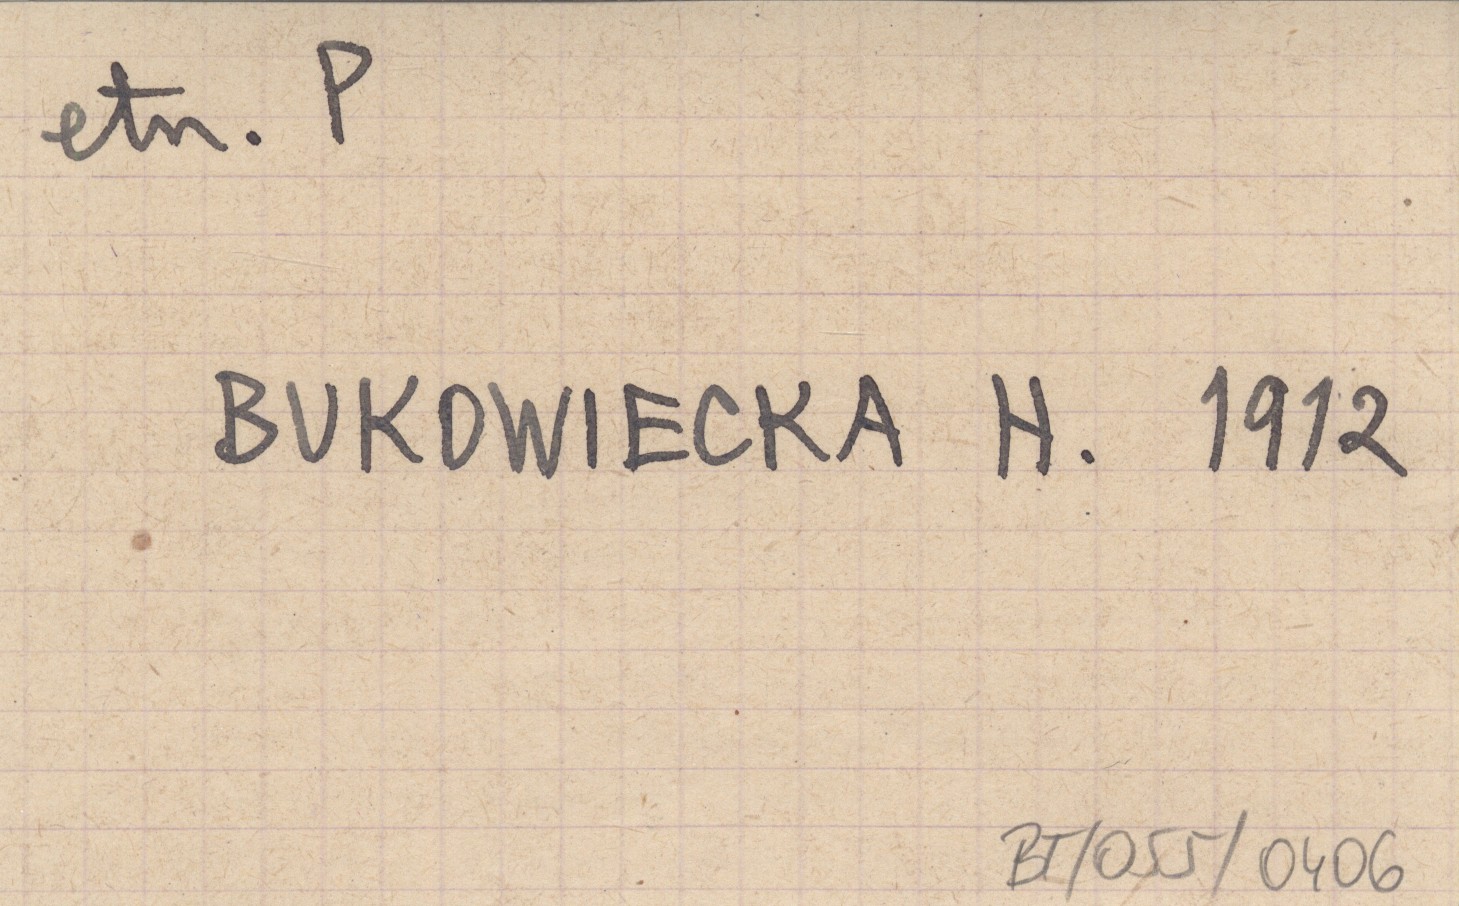 etn. P
BUKOWIECKA H. 1912
BT/055/0406